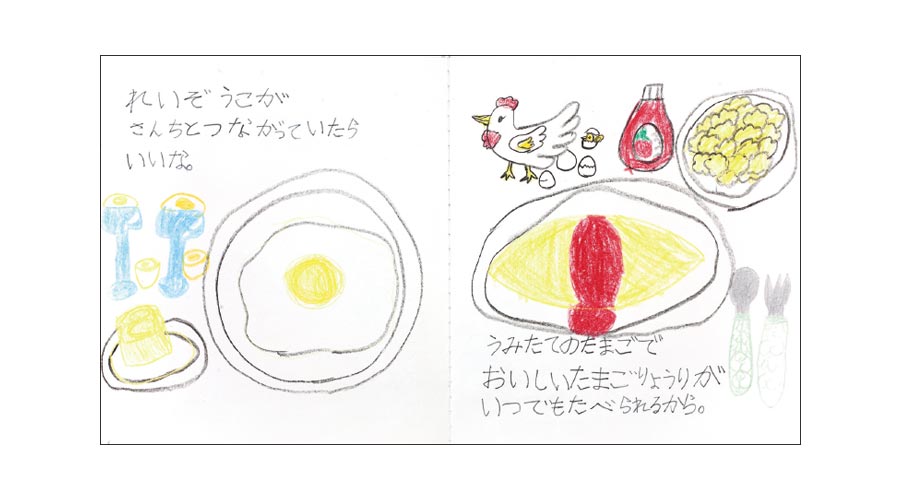 れいぞうこが
さんちとつながっていたら
いいな。
うみたてのたまごで
おいしいたまごりょうりが
いつでもたべられるから。